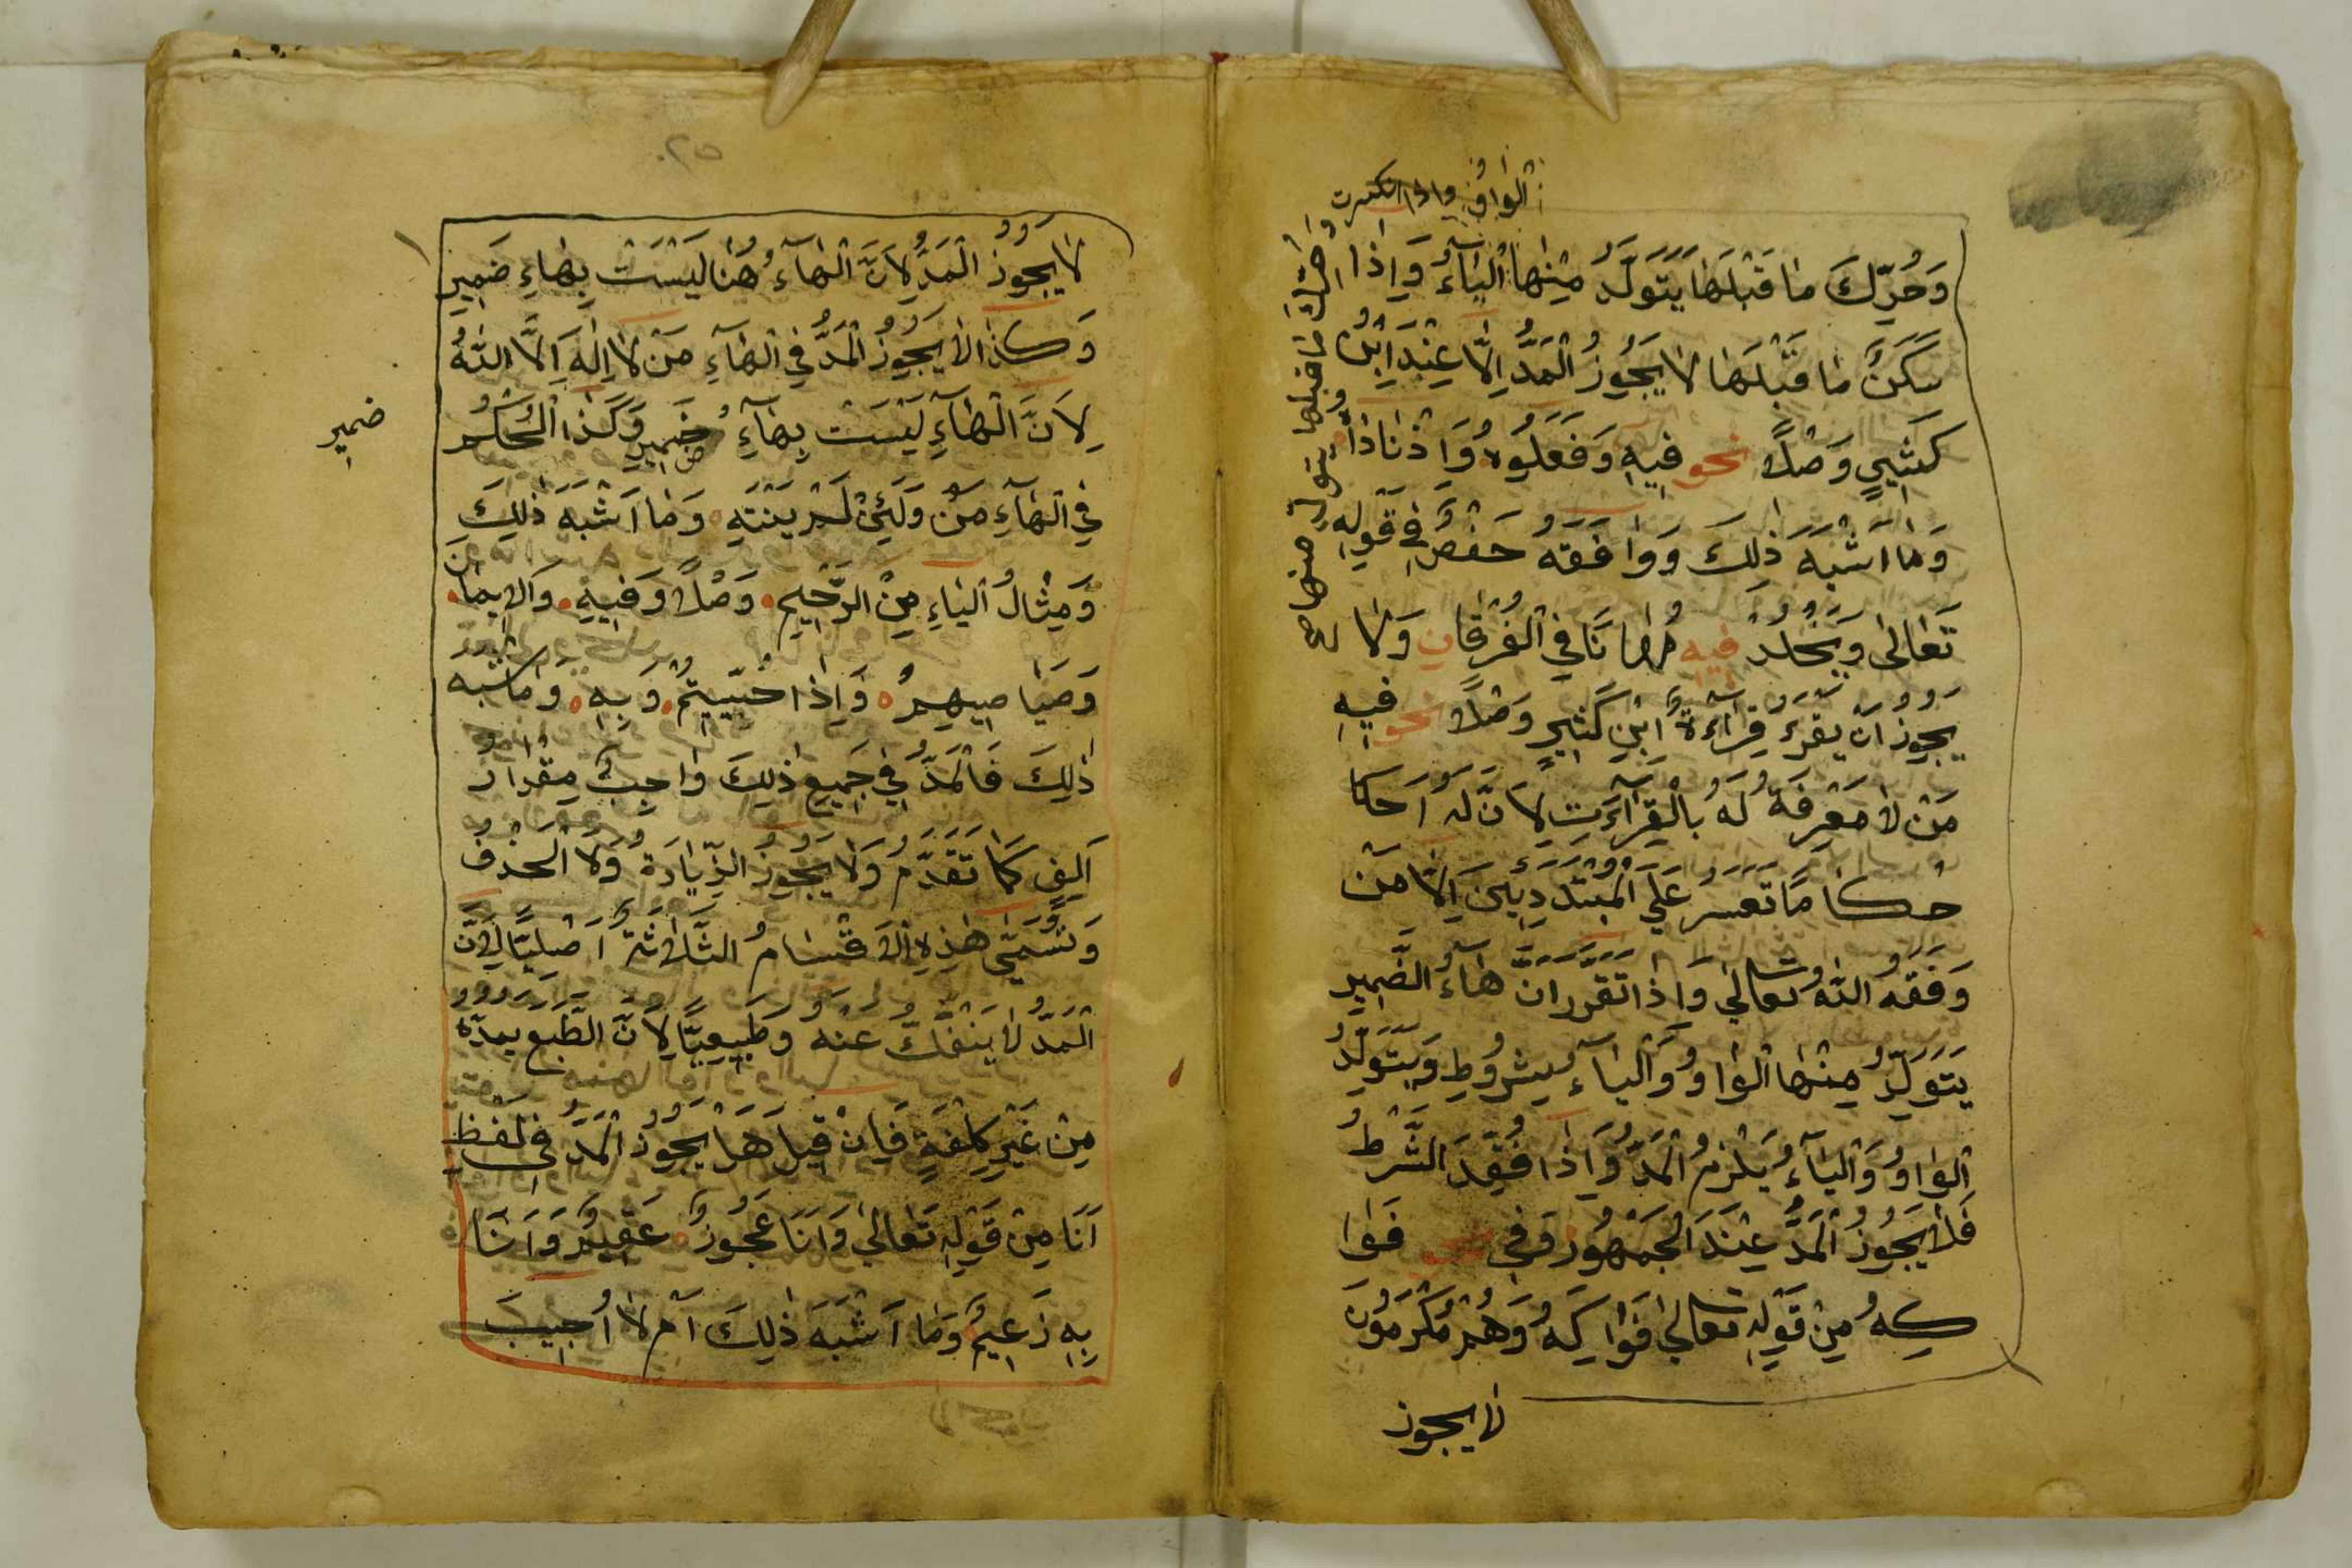 الواو واذا انكسرت
وحرك ما قبلها يتولد منها ص
وَحُرِّكَ مَا قَبْلَهَا يَتَوَلَّدُ مِنْهَا الْيَاءُ وَاِذَا
سَكَنَ مَا قَبْلَهَا لَا يَجُوزُ الْمَدُّ اِلَّا عِنْدَ ابْنُ
كَثِيرٍ وَصْلًا نحو فِيهِ وَفَعَلُوهُ وَاِذْنَاذَا
وَمَا اَشْبَهَ ذٰلِكَ وَوَافَقَهُ حَفْصٌ فِي قَوْلِهِ
تَعَالٰى وَيَخْلُدْ فيه مُهَانًا فِي الْفُرْقَانِ وَلَا
يَجُوزُ اَنْ يَقْرَءَ قِرَاءَةَ ابْنِ كَثِيرٍ وَصْلًا نحو فِيهِ
مَنْ لَا مَعْرِفَةَ لَهُ بِالْقِرَآءَتِ لِاَنَّ لَهُ اَحْكَا
حُكَا مًا تَعَسَّرَ عَلَى الْمُبْتَدِيِينَ اِلَّا مَنْ
وَفَقَهُ اللّٰهُ تعالى وَاِذَا تَقَرَّرَ اَنَّ هَآءَ الضَّمِيرِ
يَتَوَلَّدُ مِنْهَا الْوَاوُ وَالْيَآءُ بِشُرُوطٍ وَيَتَوَلَّدُ
الْوَاوُ وَالْيَآءُ يَلْزَمُ الْمَدُّ وَاِذَا فُقِدَ الشَّرْطُ
فَلَا يَجُوزُ الْمَدُّ عِنْدَ الْجَمْهُورِ وَفِي فَوَا
كِهُ مِنْ قَوْلِهِ تعالى فَوَاكِهُ وَهُمْ مُكْرَمُونَ
لا يجوز
٢٥
لَا يَجُوزُ الْمَدُّ لِاَنَّ الْهَآءَ هُنَا لَيْسَتْ بِهَاءِ ضَمِيرٍ
وَكَذَا لَا يَجُوزُ الْمَدُّ فِي الْهَآءِ مَنْ لَا اِلٰهَ اِلَّا اللّٰهُ
لِاَنَّ الْهَآءِ لَيْسَتْ بِهَآءِ ضَمِيرٍ وَكَذَا الْحُكْمُ
ضمير
فِي الْهَآءِ مِنْ وَلَئِنْ لَمْ يَنْتَهِ وَمَا اَشْبَهَ ذٰلِكَ
وَمِثَالُ الْيَاءِ مِنَ الرَّحِيمِ وَصْلًا وَفِيهِ وَالْاِيمَانِ
وَصَيَاصِيهِمْ وَاِذَا حُيِّيتُمْ وَبِهِ وَمَا اشبه
ذٰلِكَ فَالْمَدُّ فِي جَمِيعِ ذٰلِكَ وَاجِبٌ مِقْدَارَ
اَلِفٍ كَمَا تَقَدَّمَ وَلَا يَجُوزُ الزِّيَادَةُ وَلَا الْحَذْفُ
وَتُسَمّٰى هٰذِهِ الْاَقْسَامُ الثَّلَاثَةُ اَصْلِيًّا لِاَنَّ
الْمَدَّ لَا يَنْفَكُّ عَنْهُ وَطَبِيعِيًّا لِاَنَّ الطَّبْعَ يَمُدُّهُ
مِنْ غَيْرِ كُلْفَةٍ فَاِنْ قِيلَ هَلْ يَجُوزُ الْمَدُّ فِي لَفْظِ
اَنَا مِنْ قَوْلِهِ تَعَالٰى وَاَنَا عَجُوزٌ عَقِيمٌ وَاَنَا
بِهِ زَعِيمٌ وَمَا اَشْبَهَ ذٰلِكَ اَمْ لَا اُجِيبَ